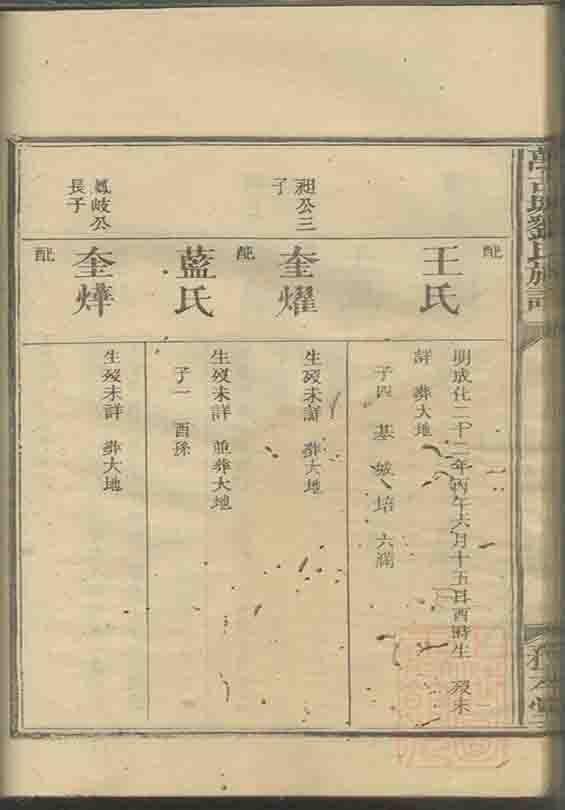 配
王氏
明成化二十二年丙午六月十五日酉時生 歿未
詳 葬大地
子四 基 城 培 六滿
祖公三
子
奎燿
生歿未詳 葬大地
配
藍氏
生歿未詳 並葬大地
子一 酉孫
鳳岐公
長子
奎燁
生歿未詳 葬大地
配